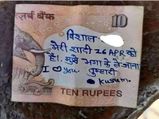 विशाल
मेरी शादी 26 APR को
है। मुझे भगा के ले जाना
I you तुम्हारी
Kusum
10
TEN RUPEES